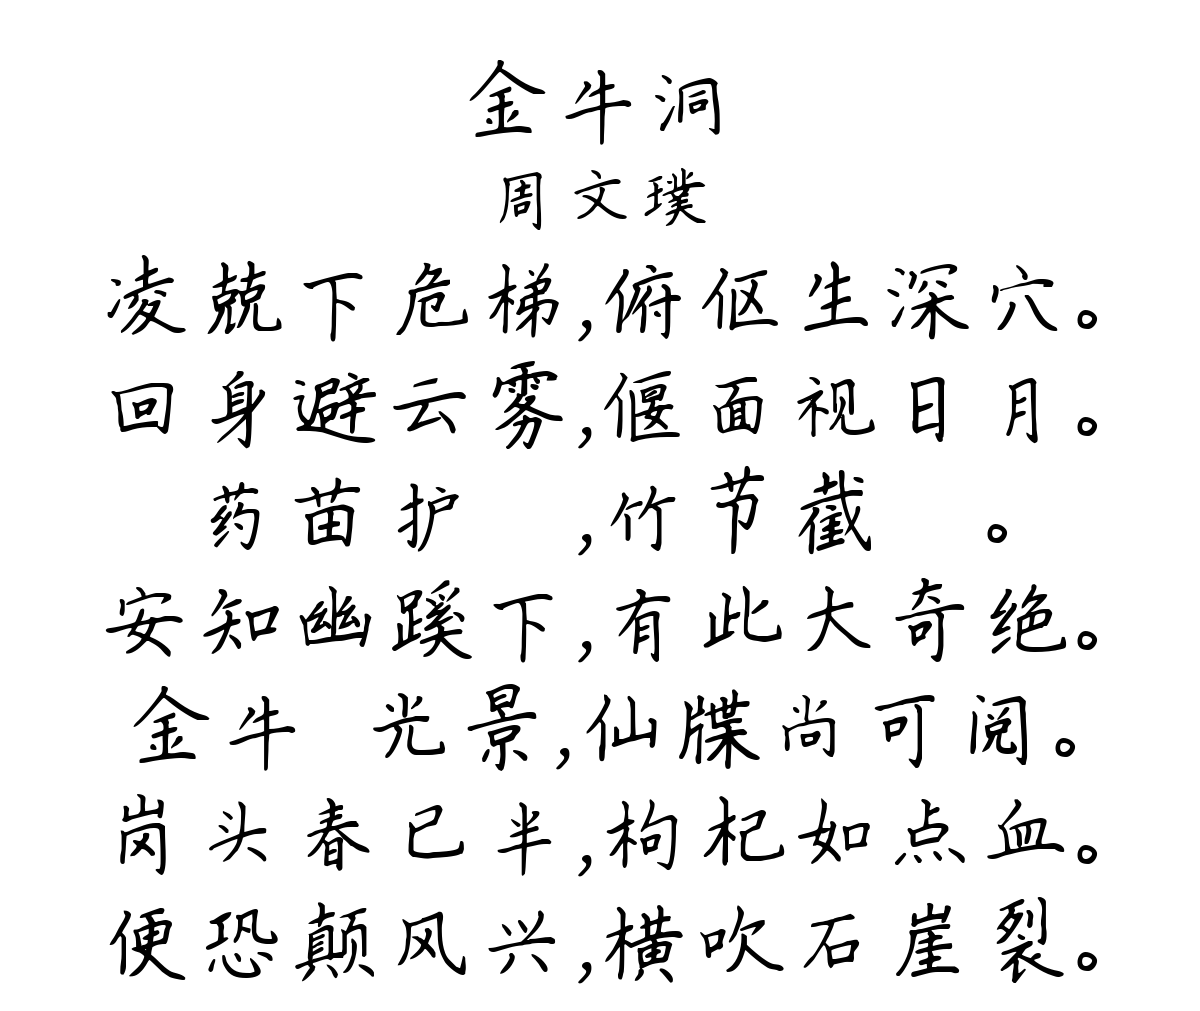 金牛洞
周文璞
凌兢下危梯,俯伛生深穴。
回身避云雾,偃面视日月。
药苗护 ,竹节截 。
安知幽蹊下,有此大奇绝。
金牛 光景,仙牒尚可阅。
岗头春已半,枸杞如点血。
便恐颠风兴,横吹石崖裂。